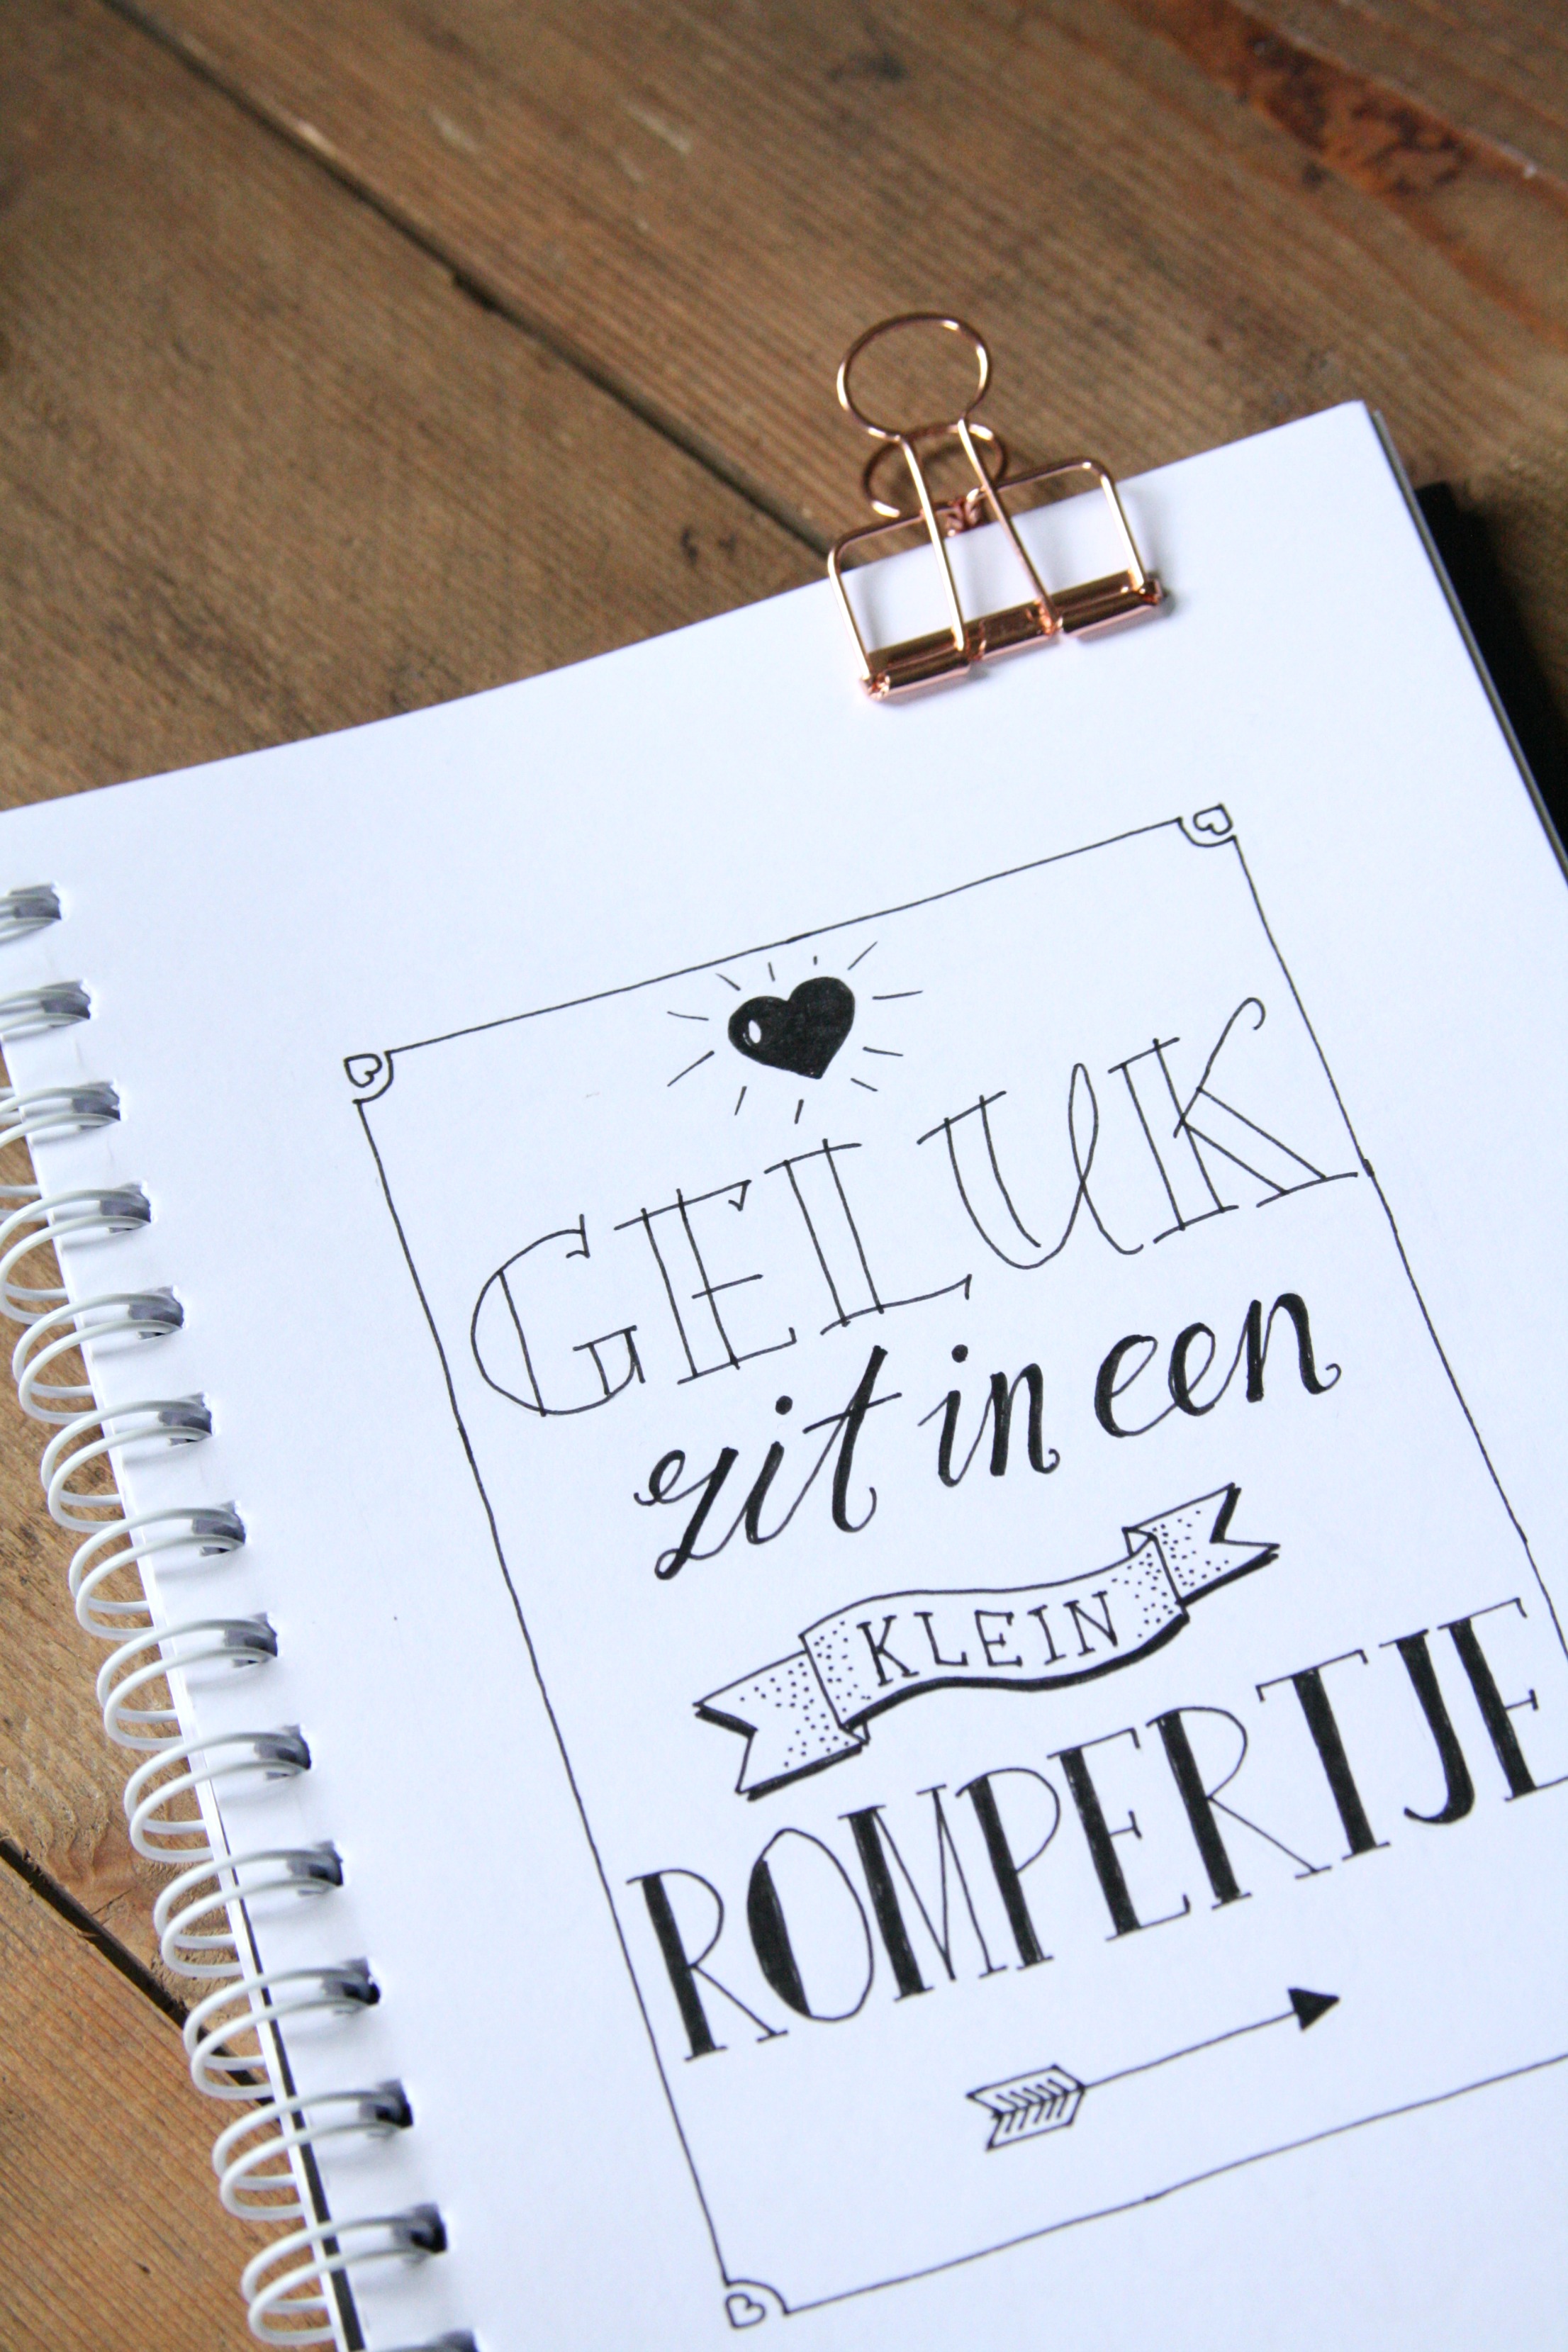 GELUK
zit in een
KLEIN
ROMPERTJE